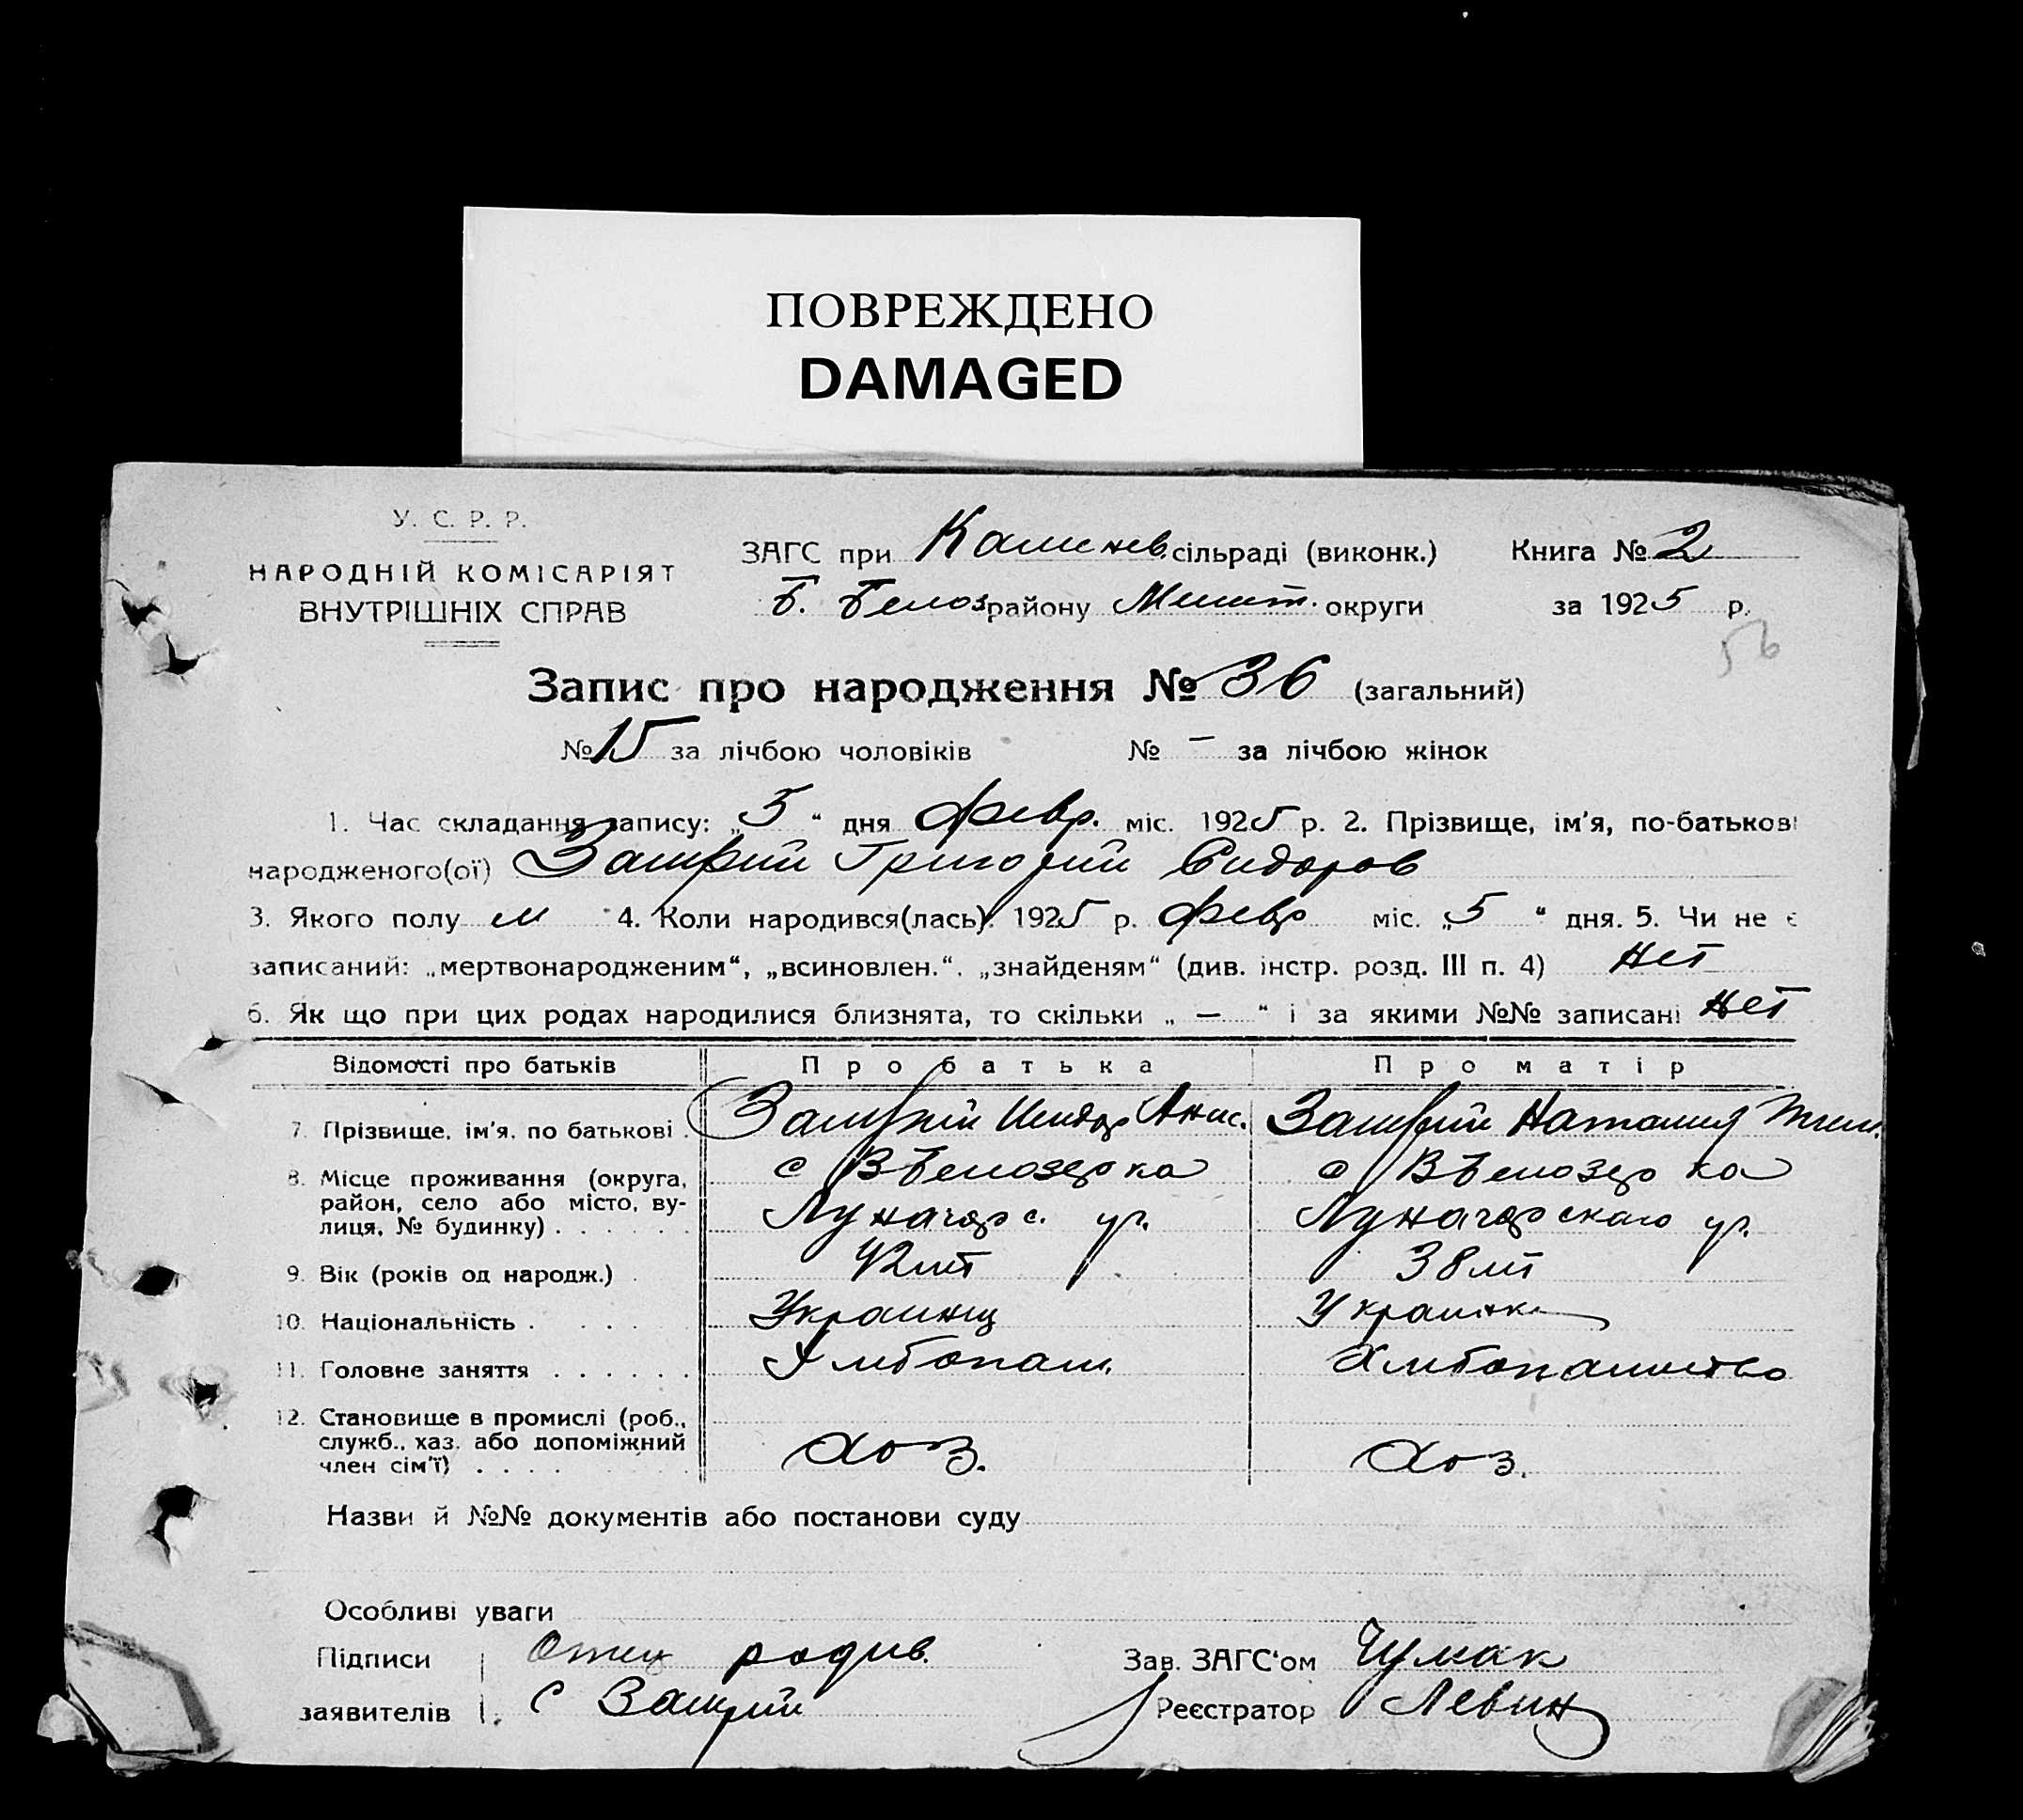 ПОВРЕЖДЕНО
DAMAGED
У. С. Р. Р.
НАРОДНІЙ КОМІСАРІЯТ
ВНУТРІШНІХ СПРАВ
ЗАГС при Каменев. сільраді (виконк.)
Б. Белоз району Мелит. округи
Книга № 2
за 1925 р.
56
Запис про народження № 36 (загальний)
№ 15 за лічбою чоловіків № – за лічбою жінок
1. Час складання запису: „5“ дня февр. міс. 1925 р. 2. Прізвище, ім'я, по-батькові
народженого(ої) Григорий Сидоров
3. Якого полу м 4. Коли народився(лась): 1925 р. февр міс. „5“ дня. 5. Чи не є
записаний: „мертвонародженим“, „всиновлен.“, „знайденям“ (див. інстр. розд. III п. 4) нет
6. Як що при цих родах народилися близнята, то скільки „ — “ і за якими №№ записані нет
Відомості про батьків Про батька Про матір
7. Прізвище, ім'я, по батькові . Анис. Наталия
8. Місце проживання (округа, с ВБелозерка с ВБелозерка
район, село або місто, ву-
лиця, № будинку) . . . . . . Луначарс. ул. Луначарскаго ул.
9. Вік (років од народж.) . 42 лет 38 лет
10. Національність . . . . . Украинец Украинка
11. Головне заняття . . . . . . Хлебопаш. Хлебопашество
12. Становище в промислі (роб.,
служб., хаз. або допоміжний
член сім'ї) . . . . Хоз. Хоз.
Назви й №№ документів або постанови суду
Особливі уваги
Підписи Отец родив. Зав. ЗАГС'ом Чумак
заявителів С Реєстратор Левин